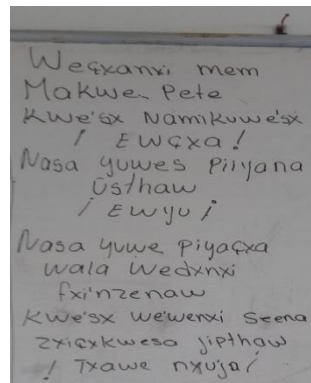 Weçxanxi mem
Makwe Pete
Kwe'sx Namikuwe'sx
! Ewçxa !
Nasa yuwes Piiyana
ũsthaw
¡ Ewyu ¡
Nasa yuwe Piyaçxa
wala wedxnxi
fxi'nzenaw
Kwe'sx we'wenxi seena
zxiçxkwesa jipthaw
! Txawe nxu'ja ¡